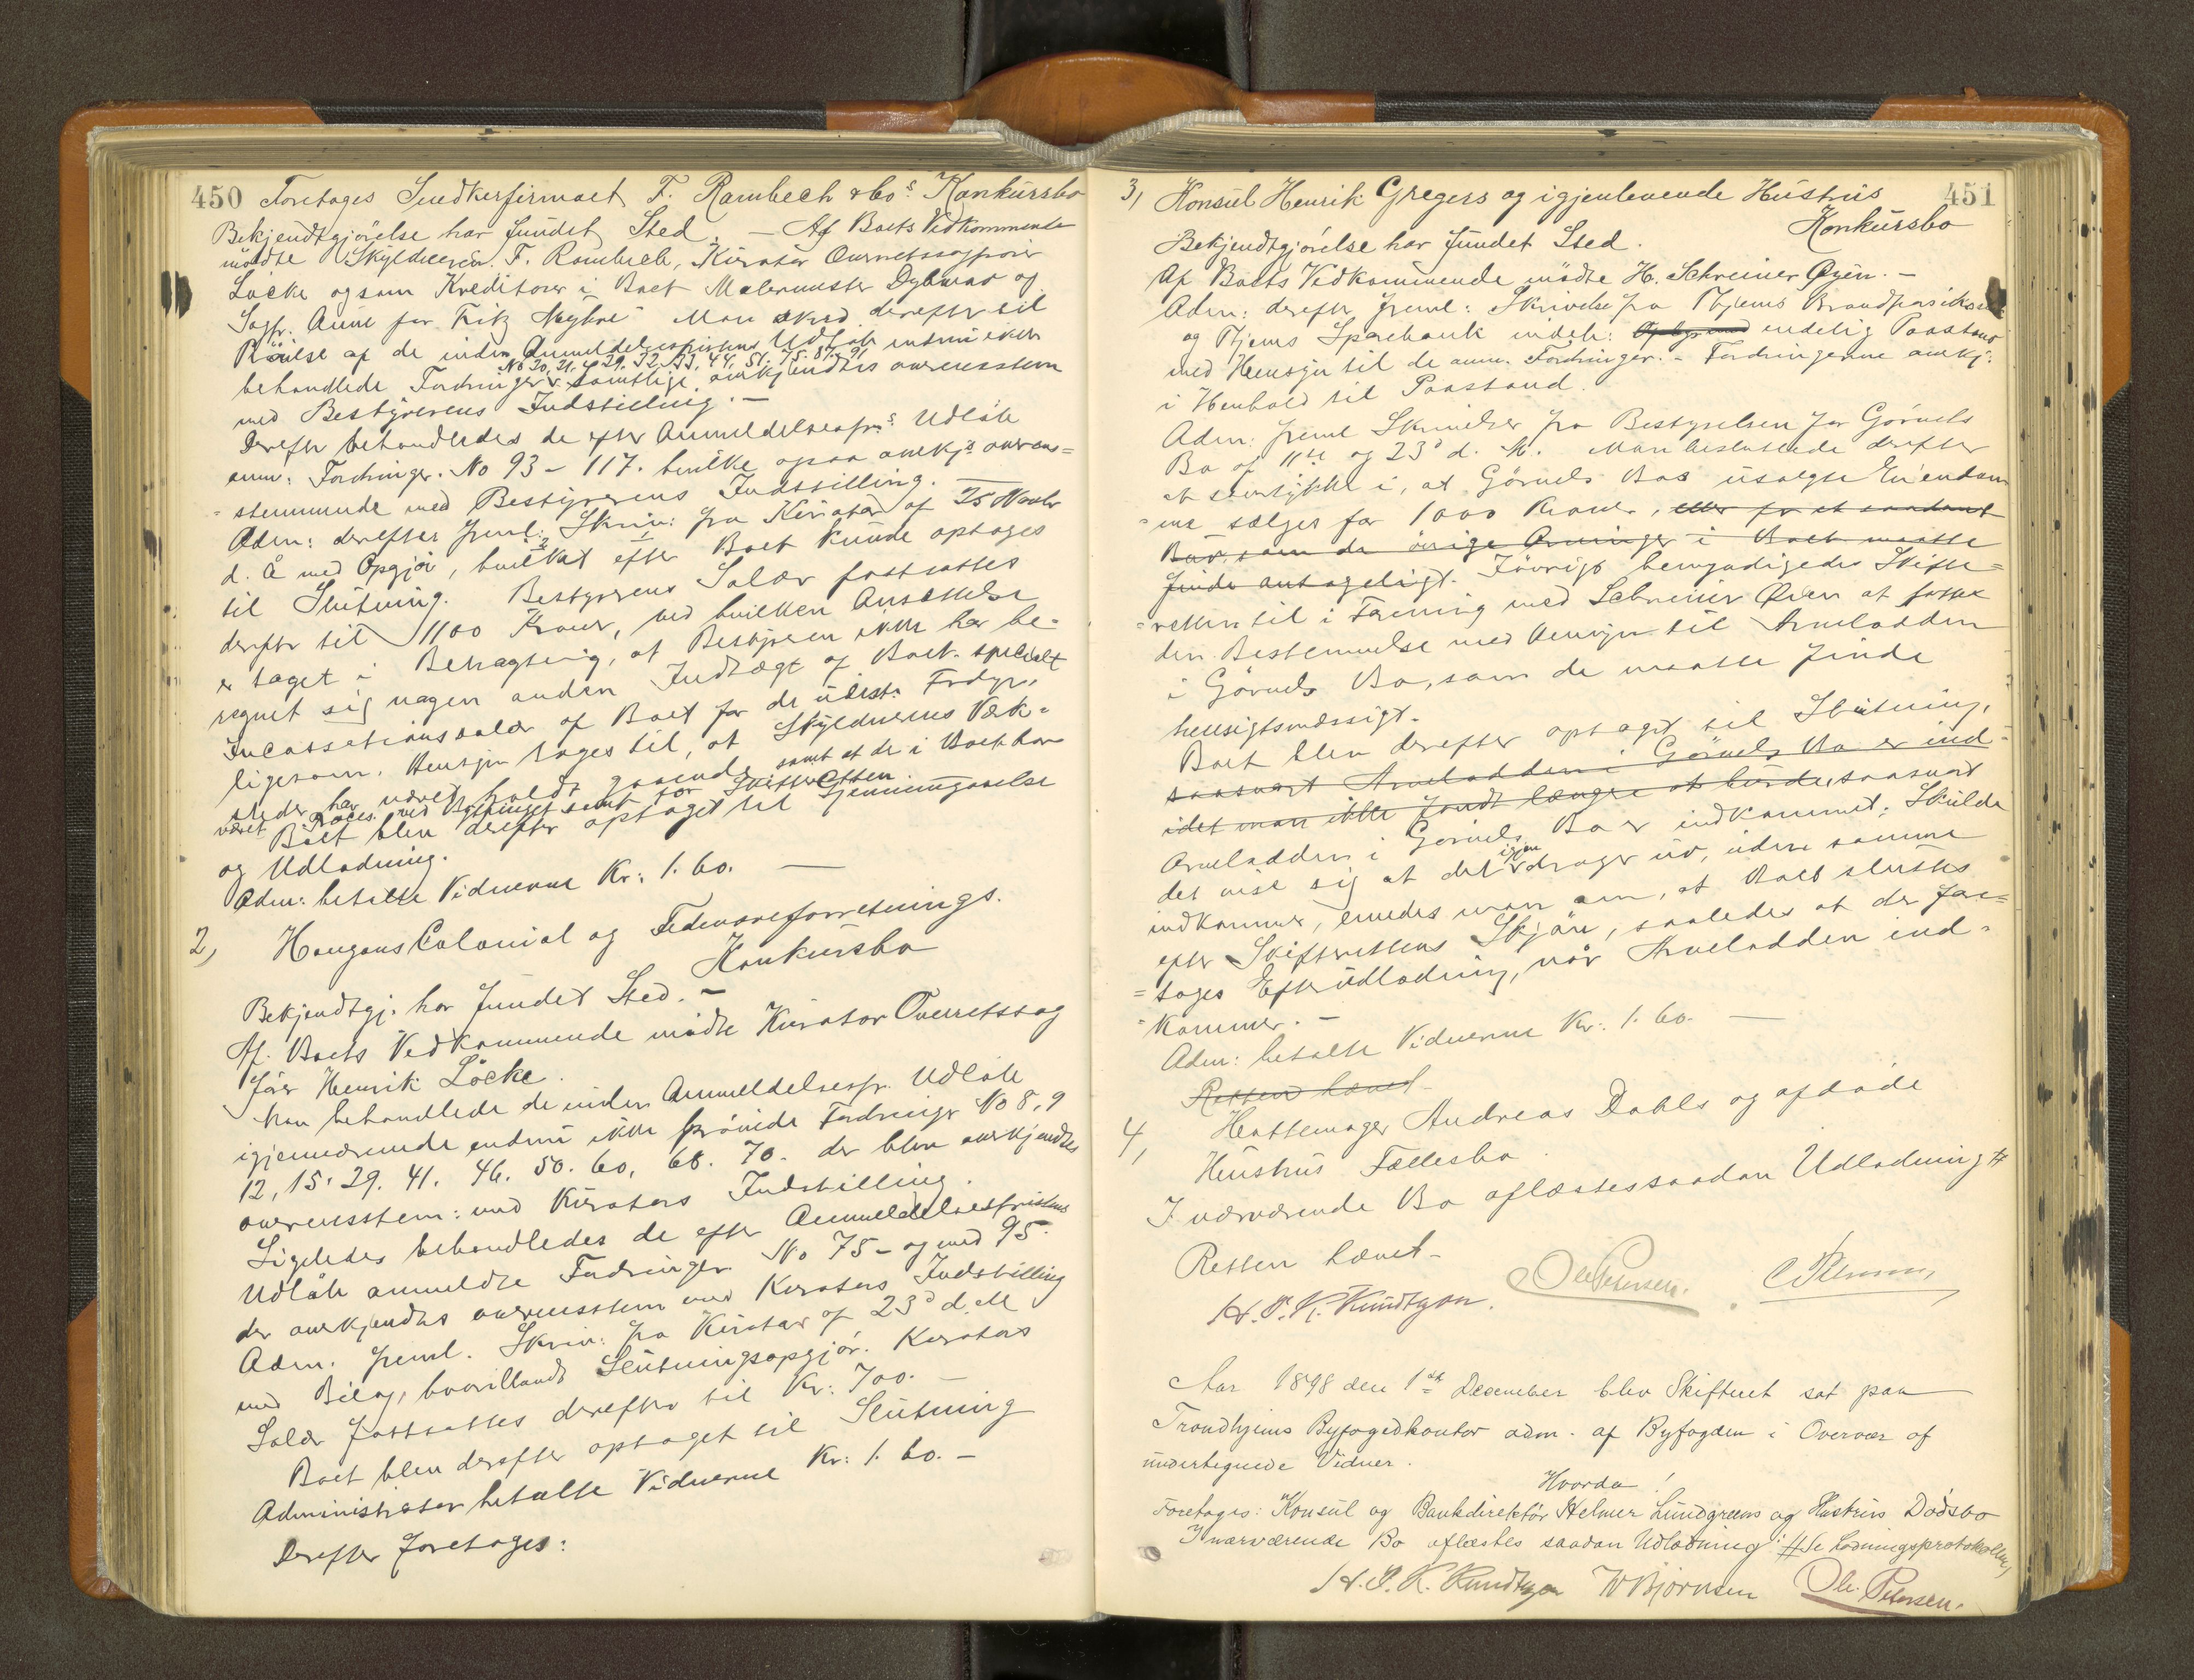 450 Foretages Snedkerfirmaet F. Rambech & Co.s Konkursbo
Bekjendtgjörelse har fundet Sted. — Af Boets Vedkommende
mödte Skyldneren F. Rambech, Kurator Overretssagförer
Löcke og som Kreditorer i Boet Malermester Dybwad og
Sagf. Aune for Fritz Man skred derefter til
Prövelse af de inden Anmeldelsesfristens Udløb endnu ikke
No 20, 21, 29. 32. 33. 44. 51. 75. 87. 91
behandlede Fordringer. Samtlige anerkjendtes overensstem
med Bestyrerens Indstilling. —
Derefter behandledes de efter Anmeldelsesfr.s Udløb
anm: Fordringer. No 93 – 117. hvilke ogsaa anerkj.s overens=
=stemmende med Bestyrerens Indstilling. —
Adm: derefter freml: Skriv: fra Kurator af 25 Novbr
d. Å med Opgjör, hvilket efter Boet kunde optages
til Slutning. Bestyrerens Salær fastsattes
derefter til 1100 Kroner, ved hvilken Ansættelse
er taget i Betragtning, at Bestyreren ikke har be-
regnet sig nogen anden Indtægt af Boet specielt
Incassationssalær af Boet for de udest. Fordgr.,
ligesom Hensyn toges til, at Skyldnerens Værk-
steder har været holdt gaaende samt at de i Boet har
været Proces ved Bythinget samt for Skifteretten
Boet blev derefter optaget til Gjennemgaaelse
og Udlodning.
Adm: betalte Vidnerne Kr: 1.60. —
2) Haugans Colonial og Fedevareforretnings.
Konkursbo
Bekjendtgj. har fundet Sted. —
Af Boets Vedkommende mödte Kurator Overretssag
förer Henrik Löcke.
Man behandlede de inden Anmeldelsesfr. Udløb
igjenværende endnu ikke prövede Fordringer No 8, 9
12, 15. 29. 41. 46. 50. 60, 68. 70. der blev anerkjendtes
overensstem: med Kurators Indstilling.
Ligeledes behandledes de efter Anmeldelsesfristens
Udløb anmeldte Fordringer No 75 – og med 95.
der anerkjendtes overensstem med Kurators Indstilling
Adm. freml. Skriv: fra Kurator af 23d d. M
med Bilag, hvoriblandt Slutningsopgjör. Kurators
Salær fastsattes derefter til Kr: 700. —
Boet blev derefter optaget til Slutning
Administrator betalte Vidnerne Kr: 1.60. —
Derefter foretages:
3, Konsul Henrik Gregers og igjenlevende Hustrus 451
Konkursbo
Bekjendtgjörelse har fundet Sted.
Af Boets Vedkommende mödte H. Schreiner Öyen. —
Adm: derefter freml: Skrivelse fra Thjems Brandforsikrings
og Thjems Sparebank indeh: endelig Paastand
med Hensyn til de anm. Fordringer. – Fordringerne anerkj:
i Henhold til Paastand.
Adm: freml Skrivelser fra Bestyrelsen for Görvels
Bo af 11te og 23d d. M. Man besluttede derefter
at samtykke i, at Görvels Bos usolgte Eiendom
=me sælges for 1000 Kroner, eller for et saadant
Bud, som de övrige Arvinger i Boet maatte
finde antageligt. Iövrigt bemyndigedes Skifte=
=retten til i Forening med Schreiner Öien at fatte
den Bestemmelse med Hensyn til Arvelodden
i Görvels Bo, som de maatte finde
hensigtsmæssigt.
Boet blev derefter optaget til Slutning,
saasnart Arvelodden i Görvels Bo er ind-
idet man ikke fandt længere at burde, saasnart
Arvelodden i Görvels Bo er indkommet; Skulde
det vise sig at det igjen drager ud, uden samme
indkommer, enedes man om, at Boet sluttes
efter Skifterettens Skjön, saaledes at der fore=
=tages Efterudlodning, når Arvelodden ind=
=kommer. —
Adm: betalte Vidnerne Kr: 1.60. —
Retten hævet
4, Hattemager Andreas Dahls og afdöde
Hustrus Fællesbo.
I nærværende Bo oplæstes saadan Udlodning #
Retten hævet –
H. P. K. Kundtzon. Ole Petersen.
Aar 1898 den 1ste December blev Skifteret sat paa
Trondhjems Byfogedkontor adm. af Byfogden i Overvær af
undertegnede Vidner.
Hvorda!
Foretages: Konsul og Bankdirektør Helmer Lundgreens og Hustrus Dødsbo
I nærværende Bo oplæstes saadan Udlodning: # Se Lodningsprotokollen,
H. P. K. Kundtzon W Bjørnsen Ole Petersen.